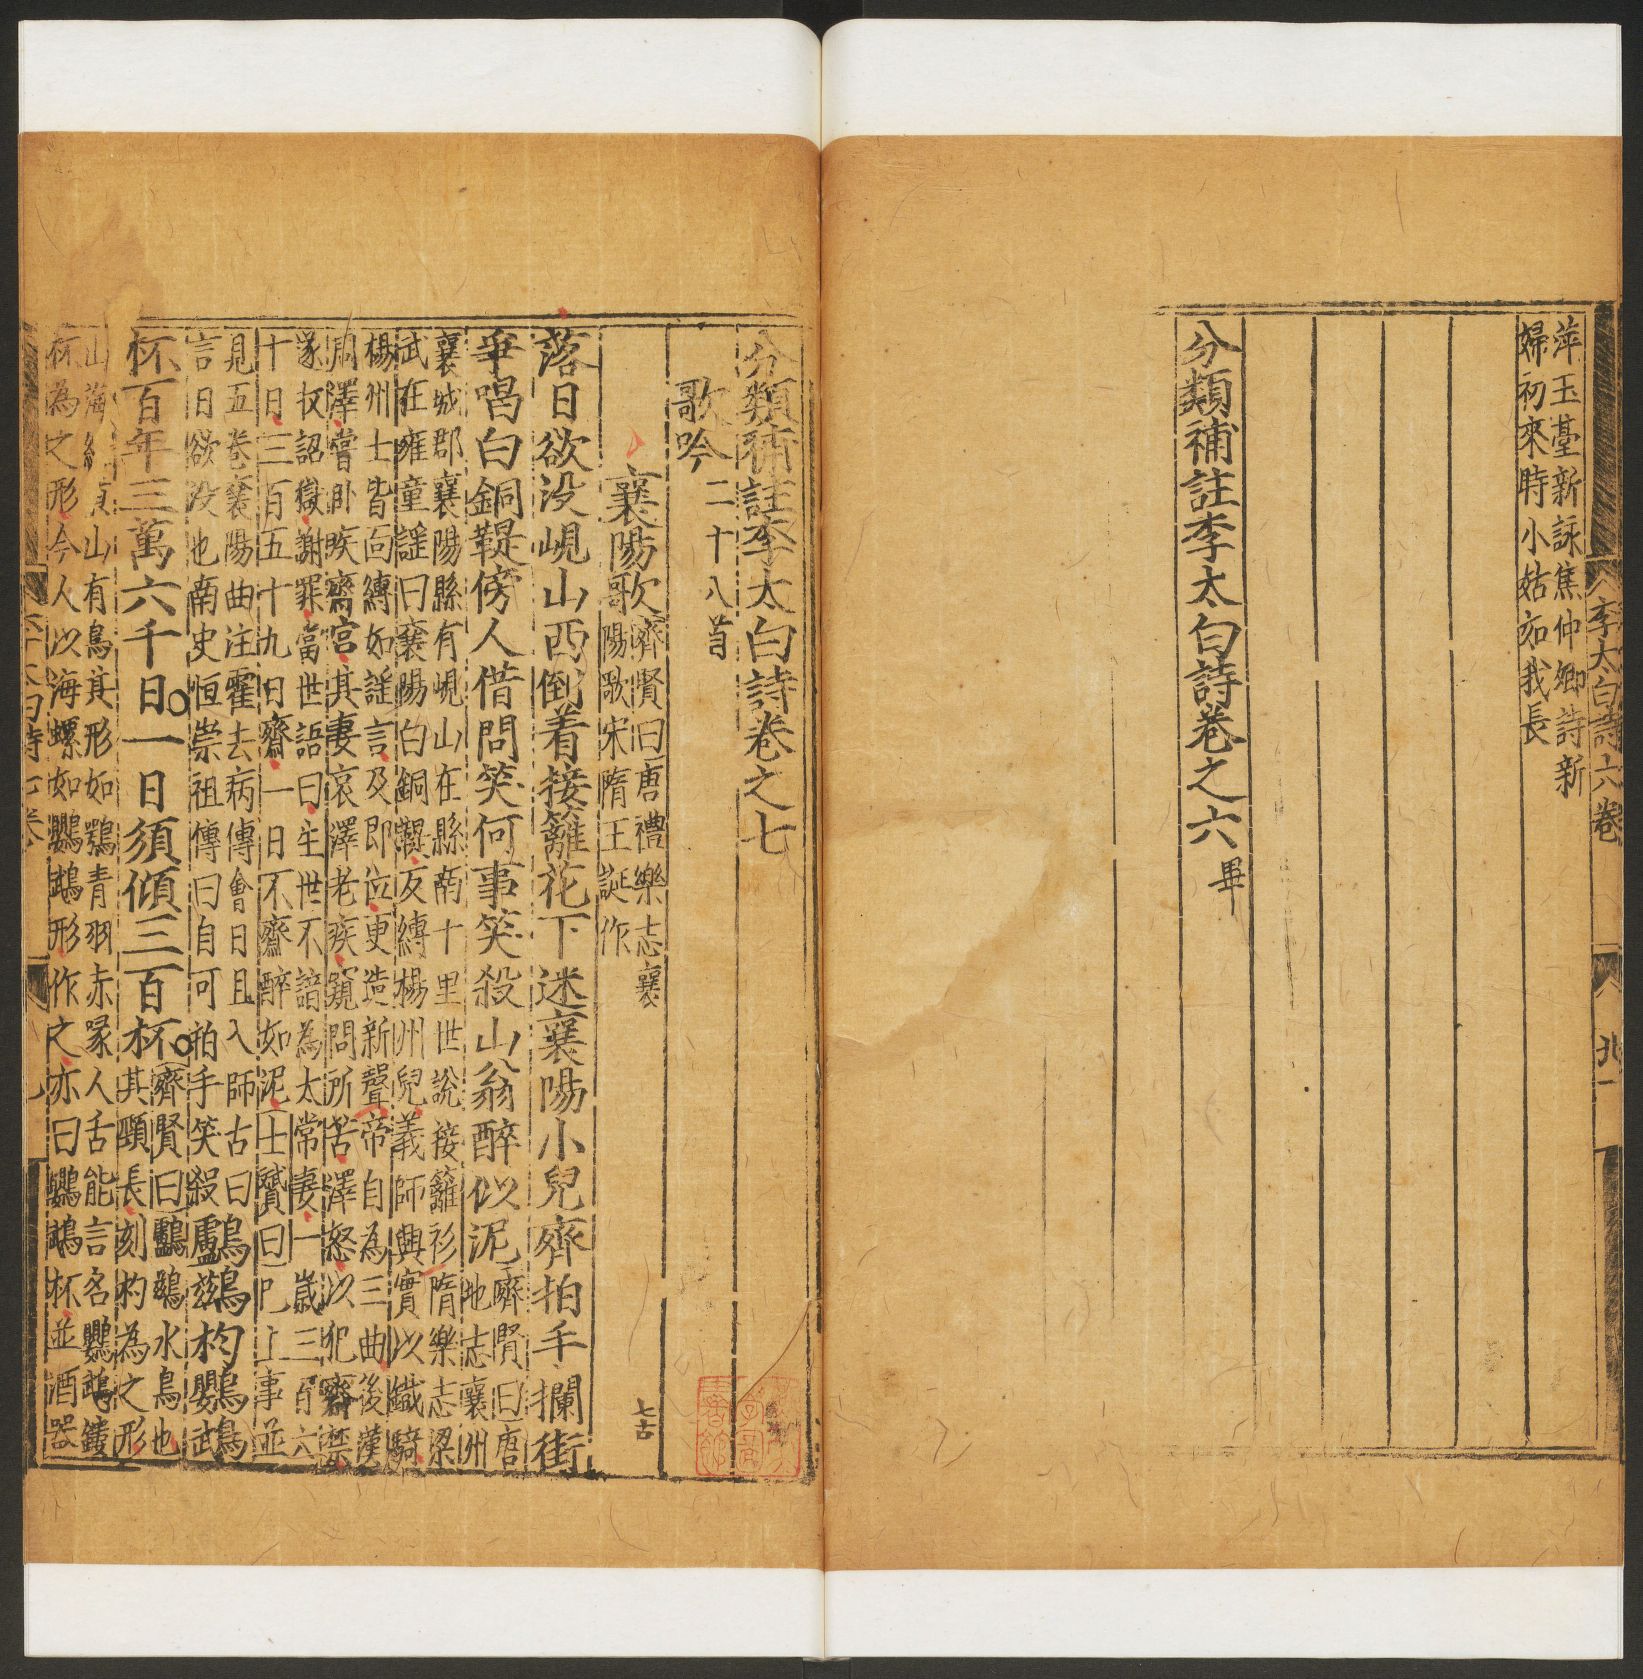 萍玉臺新詠焦仲卿詩新
婦初來時小姑如我長
分類補註李太白詩卷之六 畢
李太白詩六卷
分類補註李太白詩卷之七
歌吟 二十八首
襄陽歌 齊賢曰唐禮樂志襄
陽歌宋隋王誕作
七古
落日欲没峴山西倒着接籬花下迷襄陽小兒齊拍手攔街
爭唱白銅鞮傍人借問笑何事笑殺山翁醉似泥 齊賢曰唐
地志襄州
襄城郡襄陽縣有峴山在縣南十里世說接籬衫隋樂志梁
武在雍童謠曰襄陽白銅鞮反縛楊州兒義師興實以鐵騎
楊州士皆面縛如謠言及即位更造新聲帝自為三曲後漢
周澤嘗卧疾齋宮其妻哀澤老疾窺問所苦澤怒以犯齋禁
遂收詔獄謝罪當世語曰生世不諧為太常妻一歲三百六
十日三百五十九日齋一日不齋醉如泥士贇曰已上事並
見五卷襄陽曲注霍去病傳會日且入師古曰
言日欲没也南史恒崇祖傳曰自可拍手笑殺
鸕鶿杓鸚鵡
杯百年三萬六千日一日須傾三百杯 齊賢曰鸕鶿水鳥也
其頸長刻杓為之形
山海經 山有鳥其形如鶚青羽赤喙人舌能言名鸚鵡鏤
杯為之形今人以海螺如鸚鵡形作之亦曰鸚鵡杯並酒器